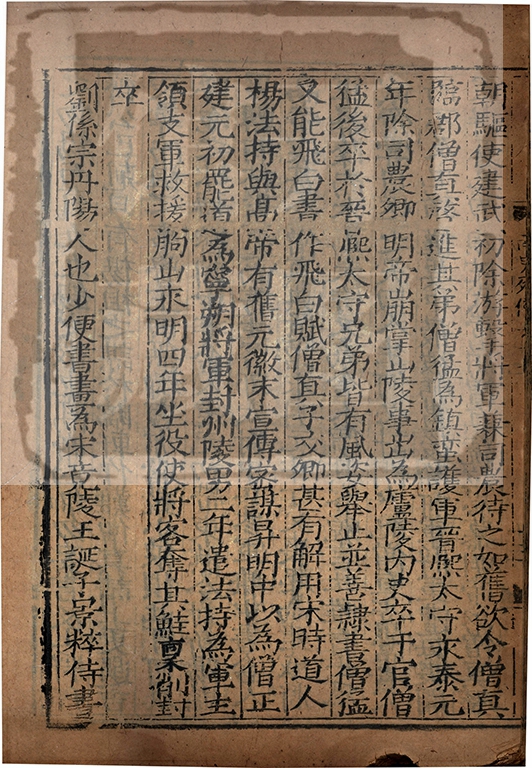 朝驅使建武初除游擊將軍兼司農待之如舊欲令僧真
臨郡僧真啓進其弟僧猛為鎮蠻護軍晉熙太守永泰元
年除司農卿明帝崩掌山陵事出為廬陵內史卒于官僧
猛後卒於晉熙太守兄弟皆有風姿舉止並善隸書僧猛
又能飛白書作飛白賦僧真子交卿甚有解用宋時道人
楊法持與高帝有舊元徽末宣傳密謀昇明中以為僧正
建元初罷道為寧朔將軍封州陵男二年遣法持為軍主
領支軍救援朐山永明四年坐役使將客奪其鮭稟削封
卒
劉係宗丹陽人也少便書畫為宋竟陵王誕子景粹侍書